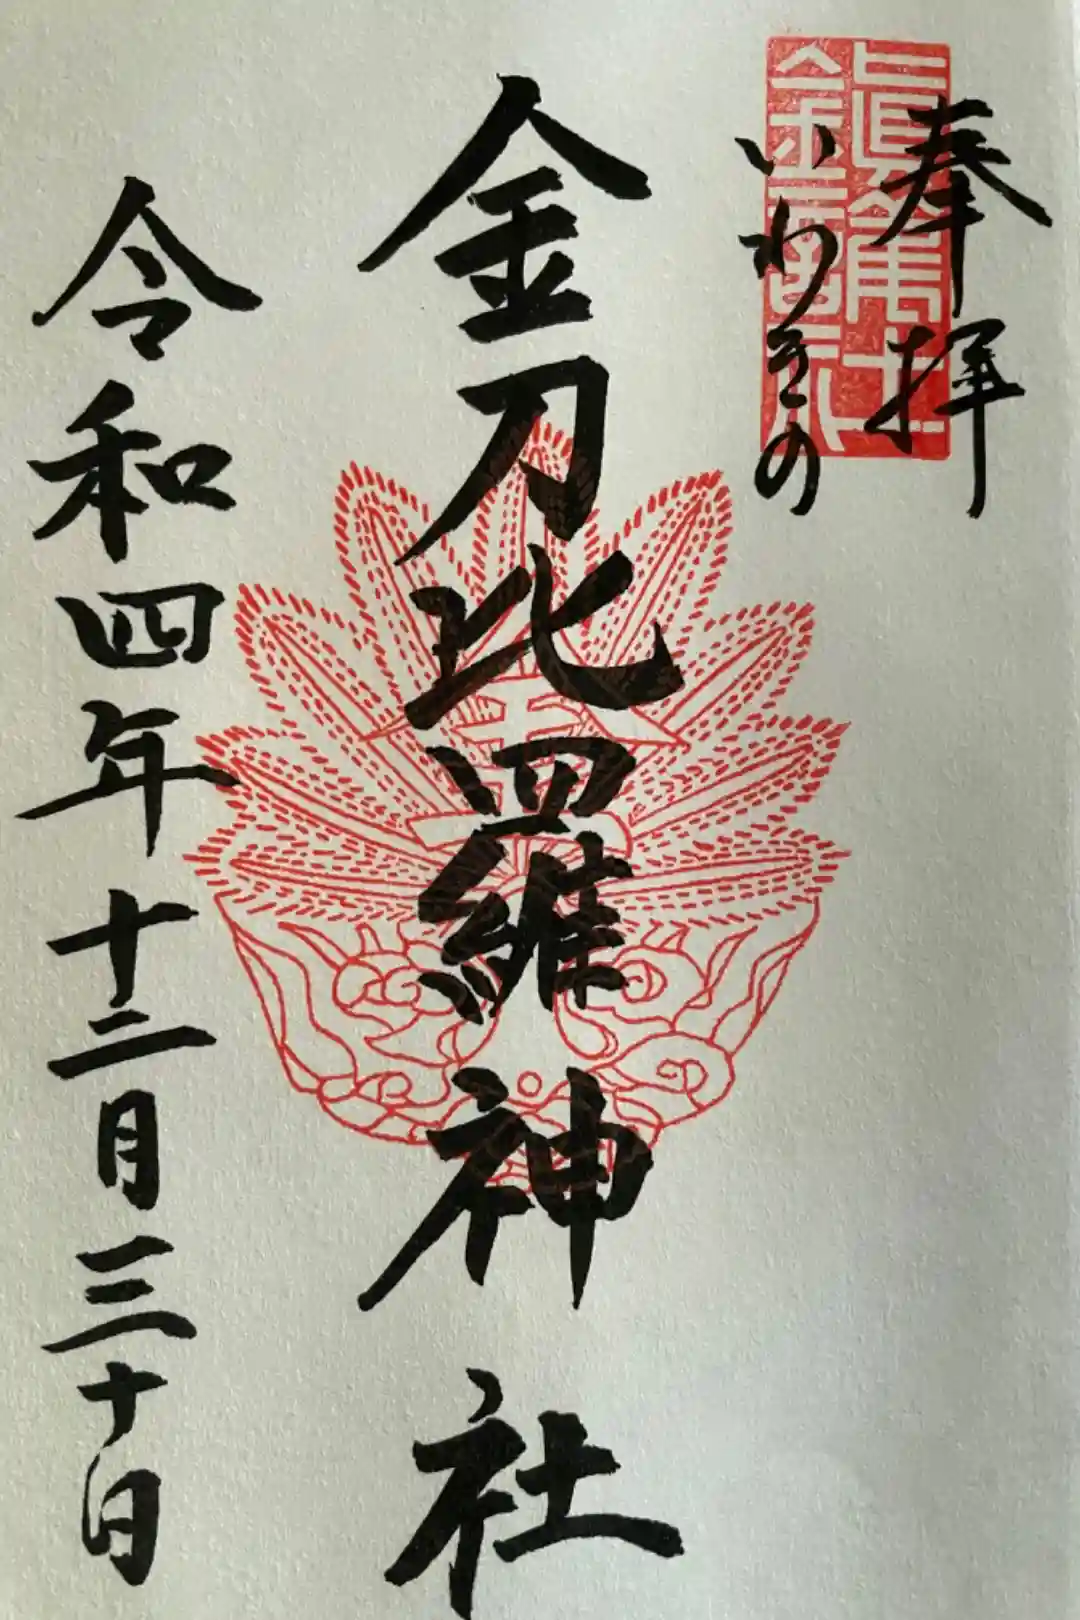 奉拝
いわきの
金刀比羅神社
令和四年十二月三十日